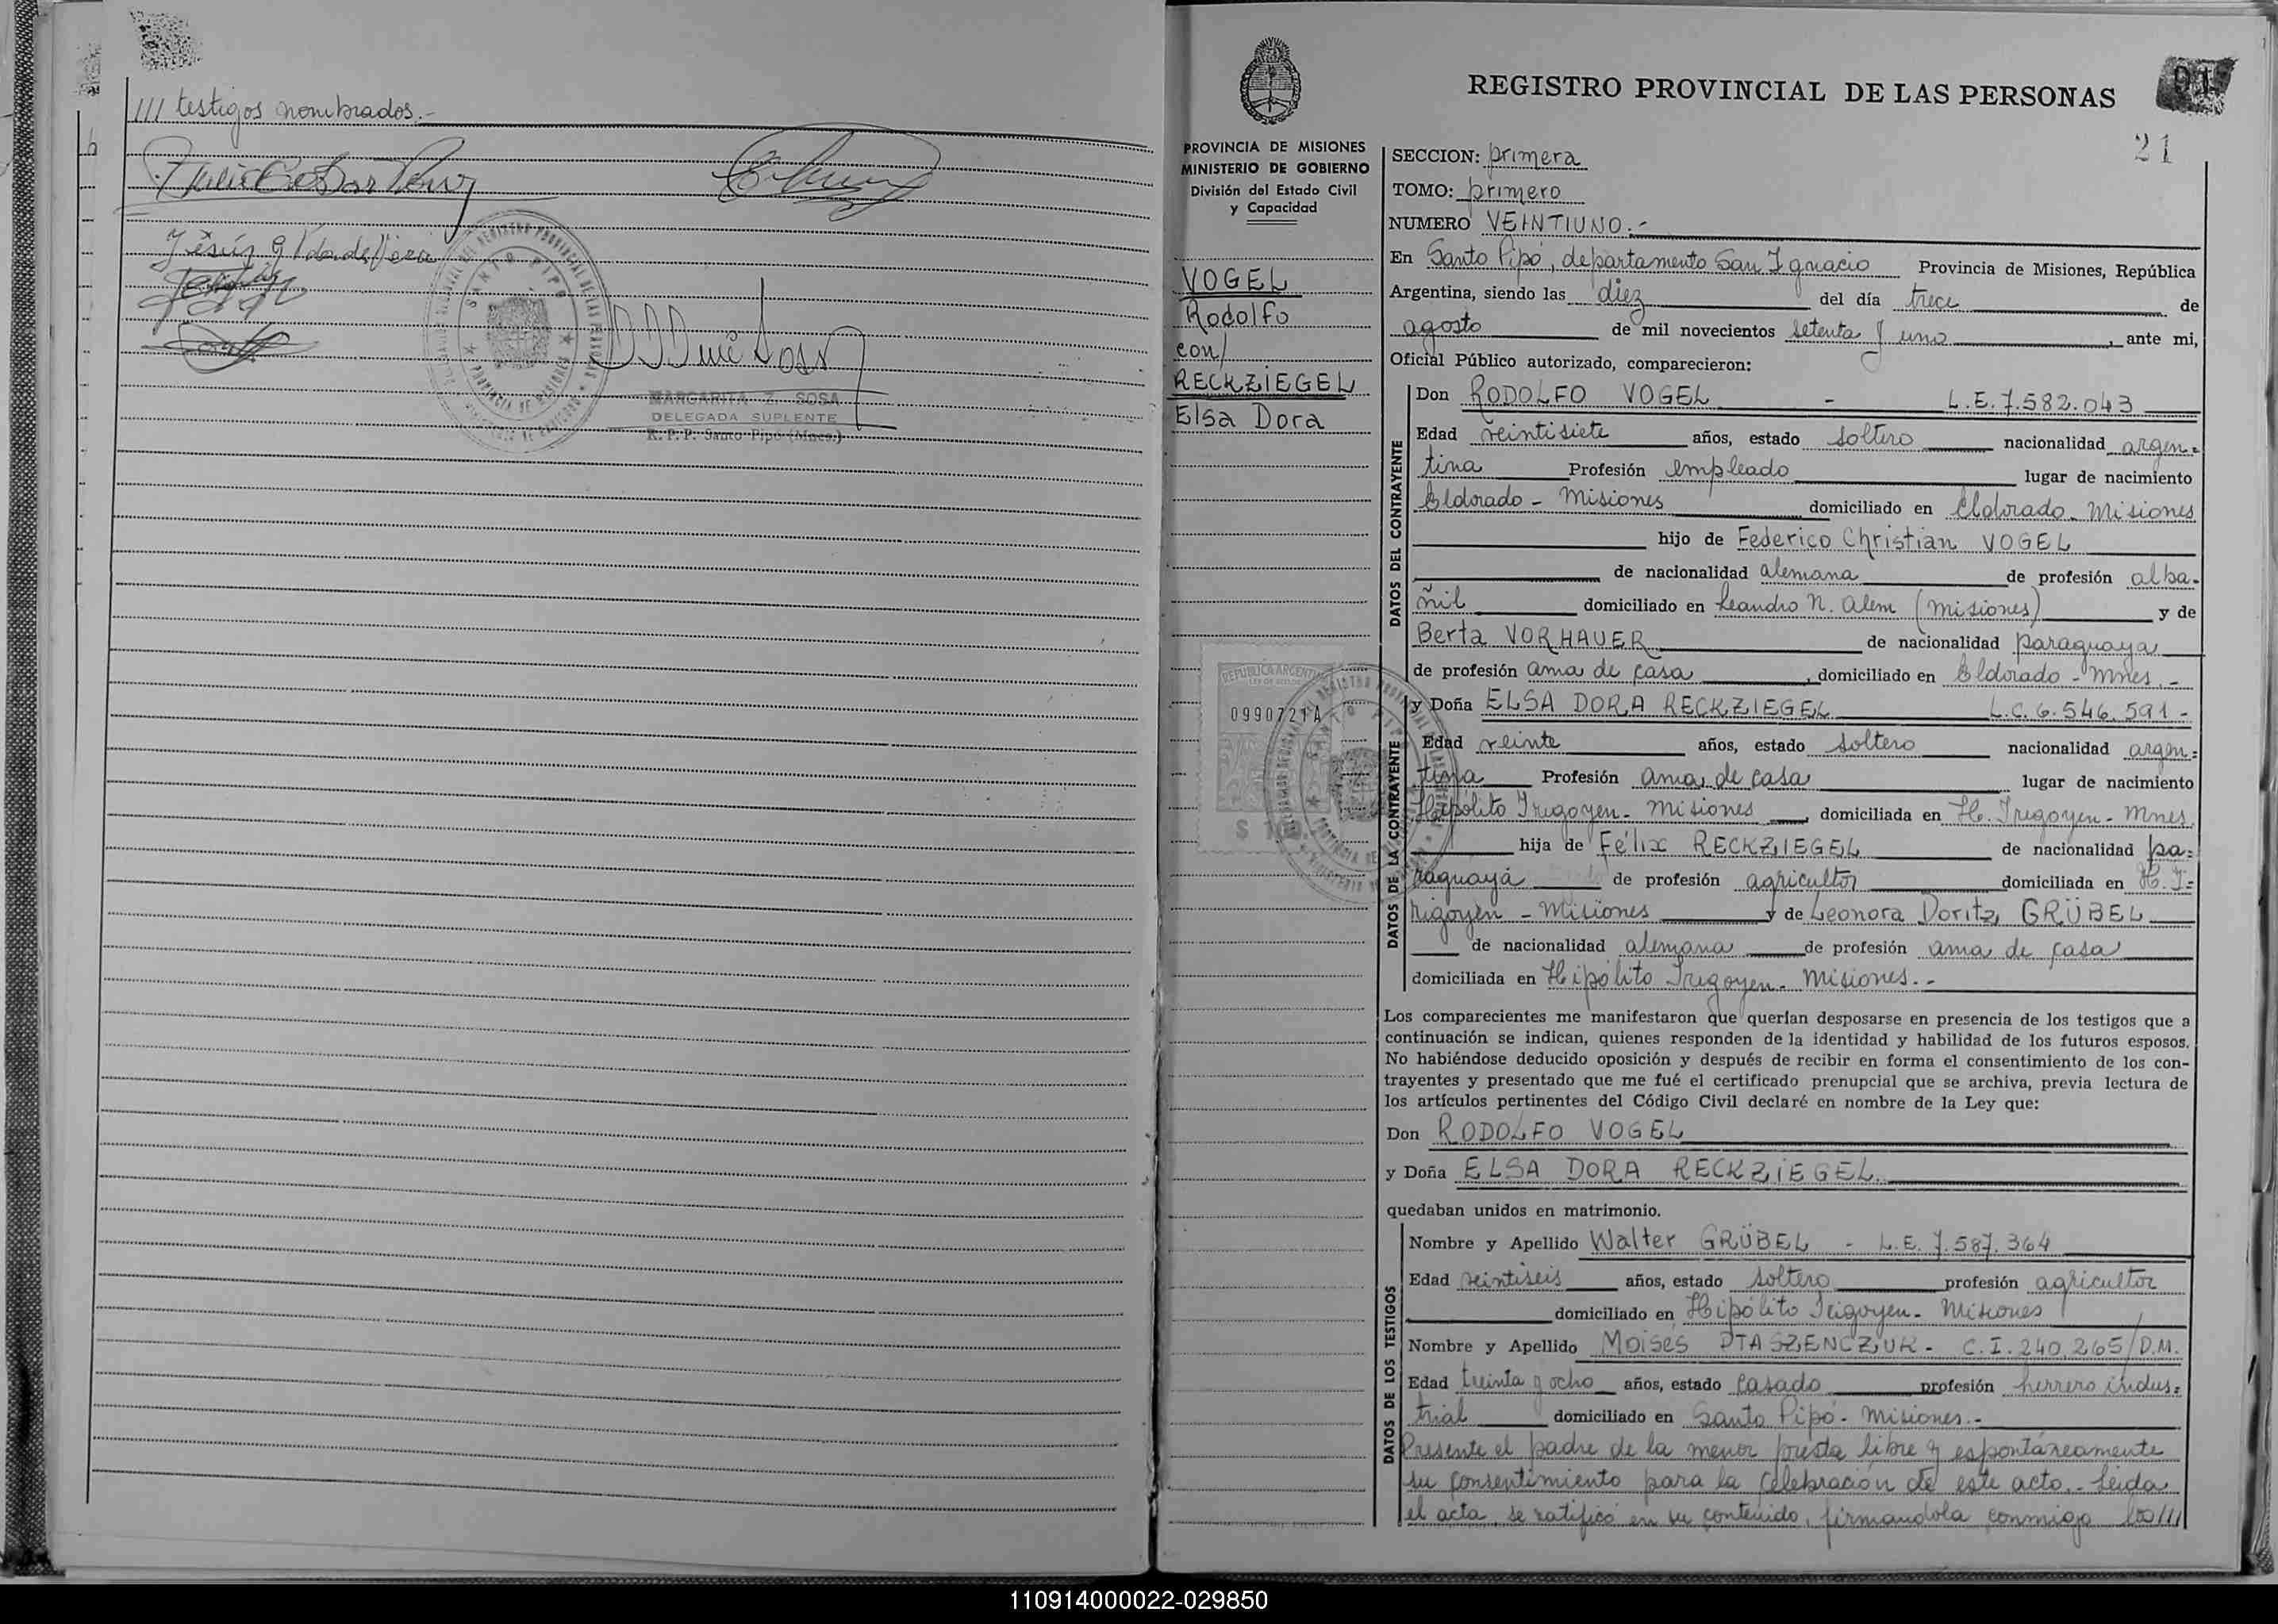 /// testigos nombrados.-
MARGARITA Z. SOSA
DELEGADA SUPLENTE
R. P. P. Santo Pipó (Mnes.)
REGISTRO PROVINCIAL DE LAS PERSONAS
21
PROVINCIA DE MISIONES
MINISTERIO DE GOBIERNO
División del Estado Civil
y Capacidad
VOGEL
Rodolfo
con/
RECKZIEGEL
Elsa Dora
REPUBLICA ARGENTINA
0990721A
SECCION: primera
TOMO: primero
NUMERO VEINTIUNO.-
En Santo Pipó, departamento San Ignacio Provincia de Misiones, República
Argentina, siendo las diez del día trece de
agosto de mil novecientos setenta y uno, ante mi,
Oficial Público autorizado, comparecieron:
DATOS DEL CONTRAYENTE
Don RODOLFO VOGEL - L.E. 7.582.043
Edad veintisiete años, estado soltero nacionalidad argen=
tina Profesión empleado lugar de nacimiento
Eldorado - Misiones domiciliado en Eldorado - Misiones
hijo de Federico Christian VOGEL
de nacionalidad alemana de profesión alba-
ñil domiciliado en Leandro N. Alem (Misiones) y de
Berta VORHAUER de nacionalidad paraguaya
de profesión ama de casa, domiciliado en Eldorado - Mnes.-
DATOS DE LA CONTRAYENTE
y Doña ELSA DORA RECKZIEGEL L.C. 6.546.591-
Edad veinte años, estado soltero nacionalidad argen=
tina Profesión ama de casa lugar de nacimiento
Hipólito Irigoyen - Misiones, domiciliada en H. Irigoyen - Mnes.
hija de Félix RECKZIEGEL de nacionalidad pa=
raguaya de profesión agricultor domiciliada en H. I=
rigoyen - Misiones y de Leonora Doritz GRÜBEL
de nacionalidad alemana de profesión ama de casa
domiciliada en Hipólito Irigoyen - Misiones.-
Los comparecientes me manifestaron que querían desposarse en presencia de los testigos que a
continuación se indican, quienes responden de la identidad y habilidad de los futuros esposos.
No habiéndose deducido oposición y después de recibir en forma el consentimiento de los con-
trayentes y presentado que me fué el certificado prenupcial que se archiva, previa lectura de
los artículos pertinentes del Código Civil declaré en nombre de la Ley que:
Don RODOLFO VOGEL
y Doña ELSA DORA RECKZIEGEL.
quedaban unidos en matrimonio.
DATOS DE LOS TESTIGOS
Nombre y Apellido Walter GRÜBEL - L.E. 7.587.364
Edad veintiseis años, estado soltero profesión agricultor
domiciliado en Hipólito Irigoyen - Misiones
Nombre y Apellido Moisés PTASZENCZUK - C.I. 240.265/D.M.
Edad treinta y ocho años, estado casado profesión herrero indus=
trial domiciliado en Santo Pipó - Misiones.-
Presente el padre de la menor presta libre y espontáneamente
su consentimiento para la celebración de este acto.- Leída
el acta, se ratificó en su contenido, firmandola conmigo los///
110914000022-029850